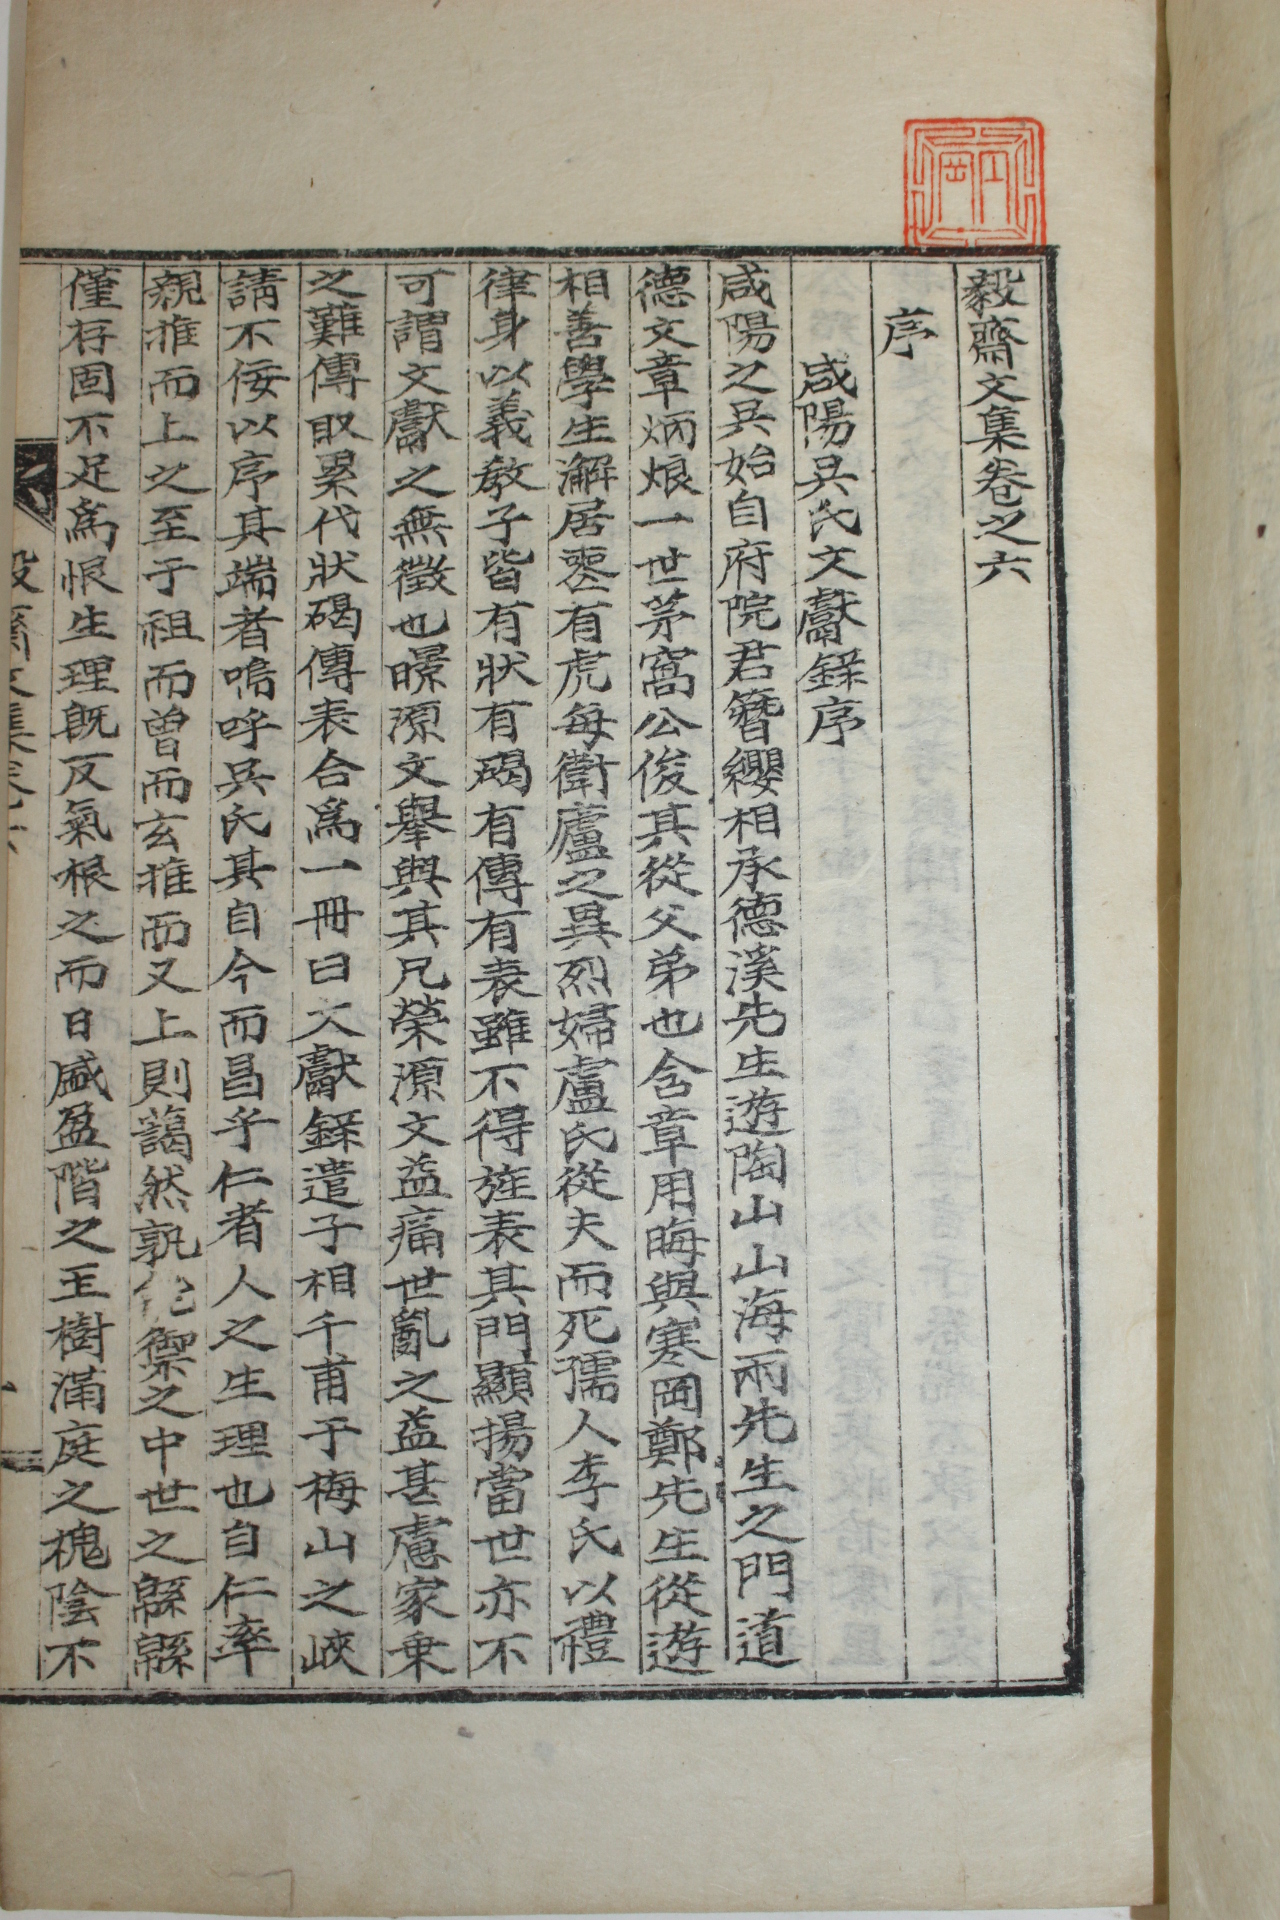 毅齋文集卷之六
序
咸陽吳氏文獻錄序
咸陽之吳始自府院君簪纓相承德溪先生遊陶山山海兩先生之門道
德文章炳烺一世茅窩公俊其從父弟也含章用晦與寒岡鄭先生從遊
相善學生澥居喪有虎每衛廬之異烈婦盧氏從夫而死孺人李氏以禮
律身以義敎子皆有狀有碣有傳有表雖不得旌表其門顯揚當世亦不
可謂文獻之無徵也暻源文擧與其兄榮源文益痛世亂之益甚慮家乘
之難傳取累代狀碣傳表合爲一冊曰文獻錄遣子相千甫于梅山之峽
請不佞以序其端者嗚呼吳氏其自今而昌乎仁者人之生理也自仁率
親推而上之至于祖而曾而玄推而又上則藹然孰能禦之中世之緜緜
僅存固不足爲恨生理旣反氣根之而日盛盈階之玉樹滿庭之槐陰不
毅齋文集卷之六